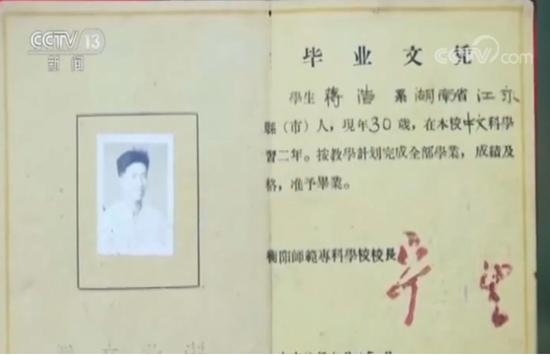 CCTV 13
新闻
CCTV.com
毕业文凭
學生 蔣浩 系湖南省江永
縣(市)人,現年30歲,在本校中文科學
習二年。按教學計划完成全部學業,成績及
格,准予畢業。
衡陽師範專科學校校長